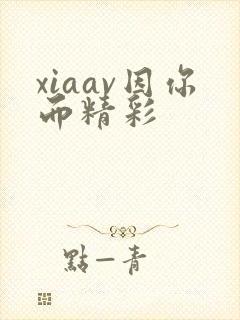 xiaav因你
而精彩
點一青